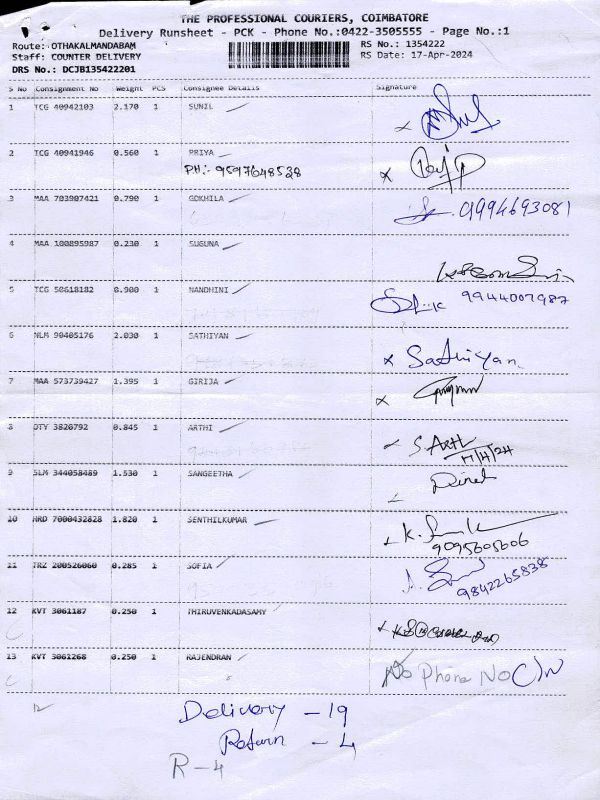 THE PROFESSIONAL COURIERS, COIMBATORE
Delivery Runsheet - PCK - Phone No.:0422-3505555 - Page No.:1
Route: OTHAKALMANDABAM RS No.: 1354222
Staff: COUNTER DELIVERY RS Date: 17-Apr-2024
DRS No.: DCJB135422201
S No Consignment No Weight PCS Consignee Details Signature
1 TCG 40942103 2.170 1 SUNIL
2 TCG 40941946 0.560 1 PRIYA
PH:- 9597648538
3 MAA 703907421 0.790 1 GOKHILA 9994693081
4 MAA 100895987 0.230 1 SUGUNA
5 TCG 50618182 0.900 1 NANDHINI 9944007987
6 NLM 90405176 2.030 1 SATHIYAN Sathiyan
7 MAA 573739427 1.395 1 GIRIJA
8 OTY 3820792 0.845 1 ARTHI S. Arthi
17/4/24
9 SLM 344058489 1.530 1 SANGEETHA
10 HRD 7000432828 1.820 1 SENTHILKUMAR
9095605606
11 TRZ 200526060 0.285 1 SOFIA
9842265838
12 KVT 3061187 0.250 1 THIRUVENKADASAMY
13 KVT 3061268 0.250 1 RAJENDRAN No Phone No
Delivery - 19
Return - 4
R - 4